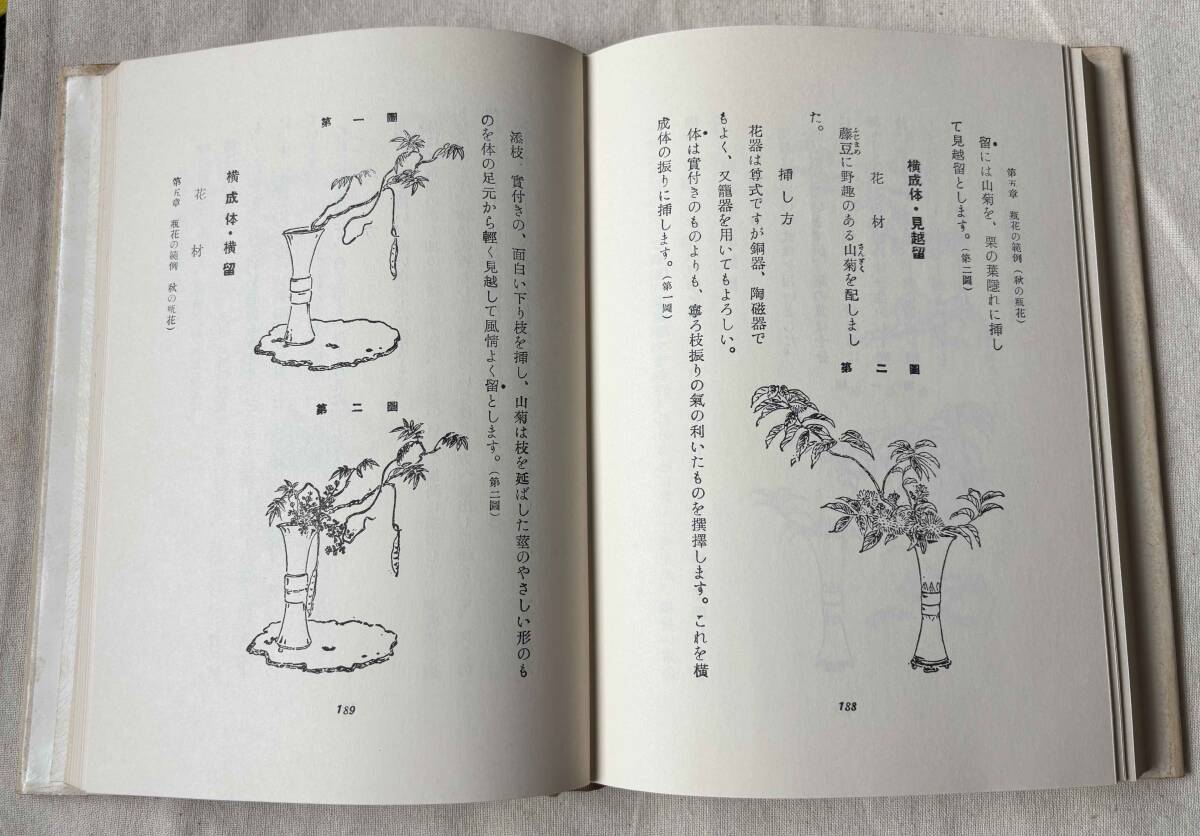 第五章　瓶花の範例（秋の瓶花）
留には山菊を、栗の葉隠れに挿し
て見越留とします。（第二圖）
横成体・見越留
花材
藤豆に野趣のある山菊を配しまし
ふじまめ
さんぎく
た。
挿し方
花器は尊式ですが銅器、陶磁器で
もよく、又籠器を用いてもよろしい。
体は實付きのものよりも、寧ろ枝振りの氣の利いたものを撰擇します。これを横
成体の振りに挿します。（第一圖）
第二圖
188
添枝、實付きの、面白い下り枝を挿し、山菊は枝を延ばした莖のやさしい形のも
のを体の足元から輕く見越して風情よく留とします。（第二圖）
第一圖
第二圖
横成体・横留
花材
第五章　瓶花の範例　秋の瓶花）
189